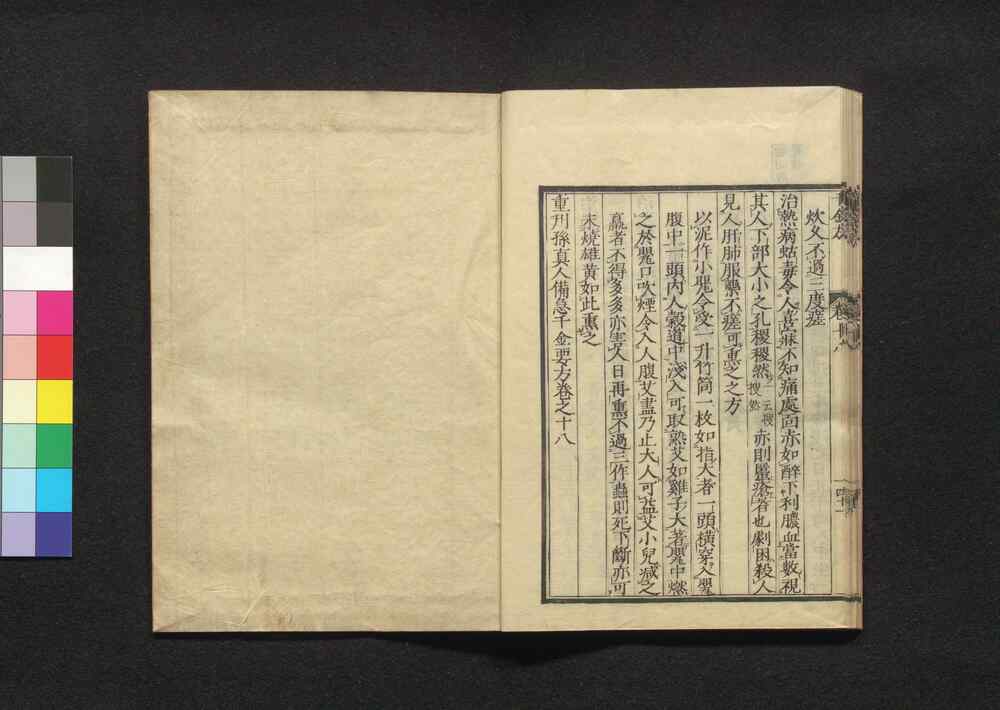 炊久不過三度瘥
治熱病䘌毒令人喜寐不知痛處面赤如醉下利膿血當數視
其人下部大小之孔稷稷然一云搜搜然亦則䘌瘡者也劇因殺人
見人肝肺服藥不瘥可熏之之方
以泥作小甖令受一升竹筒一枚如指大者一頭橫穿入甖
腹中一頭內人穀道中淺入可取熟艾如雞子大著甖中燃
之於甖口吹煙令入人腹艾盡乃止大人可益艾小兒減之
羸者不得多多亦害人日再熏不過三作蟲則死下斷亦可
末燒雄黃如此熏之
重刊孫真人備急千金要方卷之十八